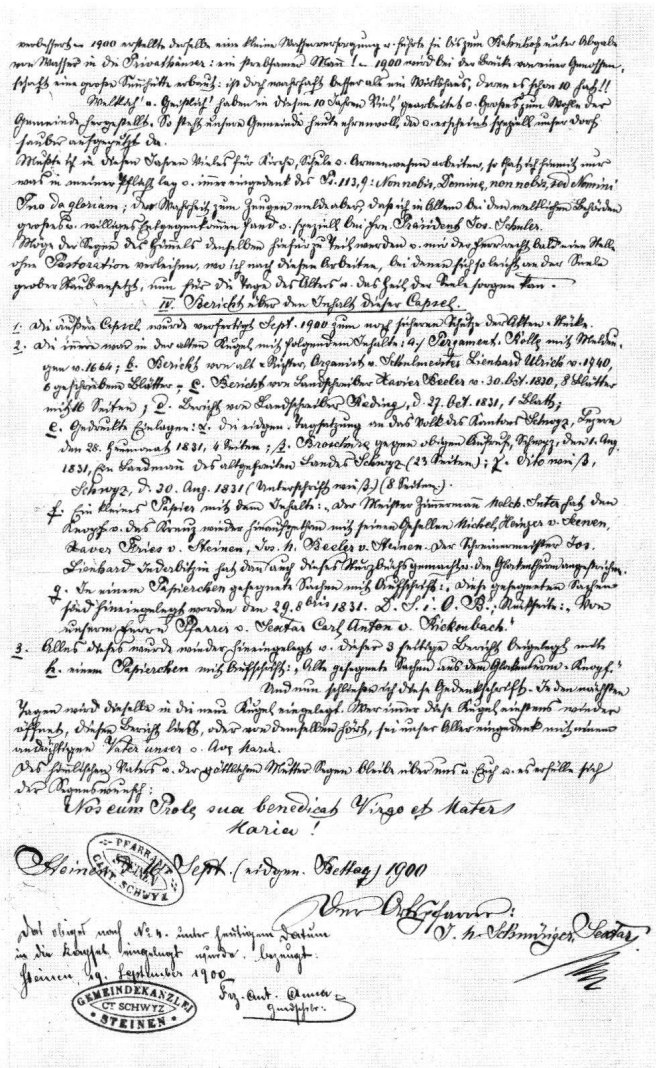 verbessert. – 1900 erstellte derselbe eine kleine Wasserversorgung u. führte sie bis zum Bahnhof unter Abgabe
von Wasser in die Privathäuser: ein strebsamer Mann! – 1900 wird bei der Brücke von einer Genossen-
schaft eine große Sennhütte erbaut: ist doch wahrhaft besser als ein Wirtshaus, deren es schon 10 hat!!
Weltlich' u. Geistlich' haben in diesen 10 Jahren Viel' gearbeitet u. Großes zum Wohle der
Gemeinde hergestellt. So steht unsere Gemeinde heute ehrenvoll da u. erscheint speziell unser Dorf
sauber aufgeputzt da.
Mußte ich in diesen Jahren Vieles für Kirche, Schule u. Armenwesen arbeiten, so that ich hiemit nur
was in meiner Pflicht lag u. immer eingedenk des Ps. 113,9: Non nobis, Domine, non nobis, sed Nomini
Tuo da gloriam; der Wahrheit zum Zeugen melde aber, daß ich in Allem bei den weltlichen Behörden
großes u. williges Entgegenkommen fand u. speziell bei Hrn. Präsident Jos. Schuler.
Möge der Segen des Himmels denselben hiefür zu Teil werden u. mir der Herr recht bald eine Stelle
ohne Pastoration verleihen, wo ich nach diesen Arbeiten, bei denen sich so leicht an der Seele
grober Staub ansetzt, nun für die Tage des Alters u. das Heil der Seele sorgen kan. –
IV. Bericht über den Inhalt dieser Capsel.
1. Die äußere Capsel wurde verfertigt Sept. 1900 zum noch sicheren Schutze der Akten-Stücke.
2. Die innere war in der alten Kugel mit folgendem Inhalte: a) Pergament-Rolle mit Meldun-
gen v. 1664; b. Bericht von alt-Richter, Organist u. Schulmeister Lienhard Ulrich v. 1740,
6 geschriebene Blätter; – c. Bericht von Landschreiber Xavier Beeler v. 30. Oct. 1830, 8 Blätter
mit 16 Seiten; d. Bericht von Landschreiber Reding, d. 27. Oct. 1831, 1 Blatt;
e. Gedruckte Einlagen: α. die eidgen. Tagsatzung an das Volk des Kantons Schwyz, Luzern
den 28. Heumonat 1831, 4 Seiten; β. Broschüre gegen obigen Aufruf, Schwyz, den 1. Aug.
1831, Ein Landmann des altgefreiten Landes Schwyz (23 Seiten); γ. dito
Schwyz, d. 30. Aug. 1831 (Unterschrift (8 Seiten).
f. Ein kleines Papier mit dem Inhalt: „Der Meister Zimermann Melch. Inter hat den
Knopf u. das Kreuz wieder hinaufgethan mit seinen Gesellen Michel Heinzer v. Seenen,
Xaver Fries v. Steinen, Jos. M. Beeler v. Steinen. Der Schreinermeister Jos.
Lienhard Inderbitzin hat dan auch dieses gemacht u. den Glockenthurm angestrichen.
g. In einem Papierchen gesegnete Sachen mit Aufschrift: „Diese gesegneten Sachen
sind hineingelegt worden den 29. 8bris 1831. D. S. i. O. B., Rückseite: „Von
unserm Herrn Pfarrer u. Sextar Carl Anton v. Rickenbach."
3. Alles dieses wurde wieder hineingelegt u. dieser 3 seitige Bericht beigelegt nebst
h. einem Papierchen mit Aufschrift: „Alte gesegnete Sachen aus dem Glockenturm-Knopf."
Und nun schließe ich diese Gedenkschrift. In den nächsten
Tagen wird dieselbe in die neue Kugel eingelegt. Wer imer diese Kugel einstens wieder
öffnet, diesen Bericht liest, oder von demselben hört, sei unser Aller eingedenk mit einem
andächtigen Vater unser u. Ave Maria.
Des himlischen Vaters u. der göttlichen Mutter Segen bleibe über uns u. Euch u. es erfülle sich
der Segenswunsch:
Nos cum Prole sua benedicat Virgo et Mater
Maria!
PFARRAMT
STEINEN
CANT. SCHWYZ
Steinen, Sept. (eidgen. Bettag) 1900
Der Ortspfarrer:
Sextar
Das obiges nach No 4. unter heutigem Datum
in die Kapsel eingelegt wurde, bezeugt.
Steinen, 29. September 1900
Frz. Ant. Anna
Gmdschrbr.
GEMEINDEKANZLEI
CT SCHWYZ
STEINEN